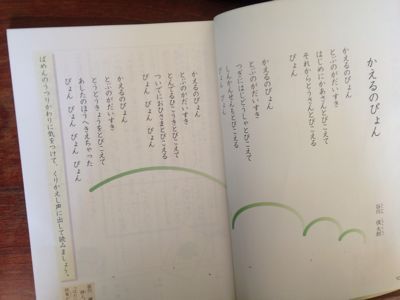 かえるのぴょん
谷川 俊太郎
かえるのぴょん
とぶのがだいすき
はじめにかあさんとびこえて
それからとうさんとびこえる
ぴょん
かえるのぴょん
とぶのがだいすき
つぎにはじどうしゃとびこえて
しんかんせんもとびこえる
ぴょん ぴょん
かえるのぴょん
とぶのがだいすき
とんでるひこうきとびこえて
ついでにおひさまとびこえる
ぴょん ぴょん ぴょん
かえるのぴょん
とぶのがだいすき
とうとうきょうをとびこえて
あしたのほうへきえちゃった
ぴょん ぴょん ぴょん ぴょん
ばめんのうつりかわりに気をつけて、くりかえし声に出して読みましょう。